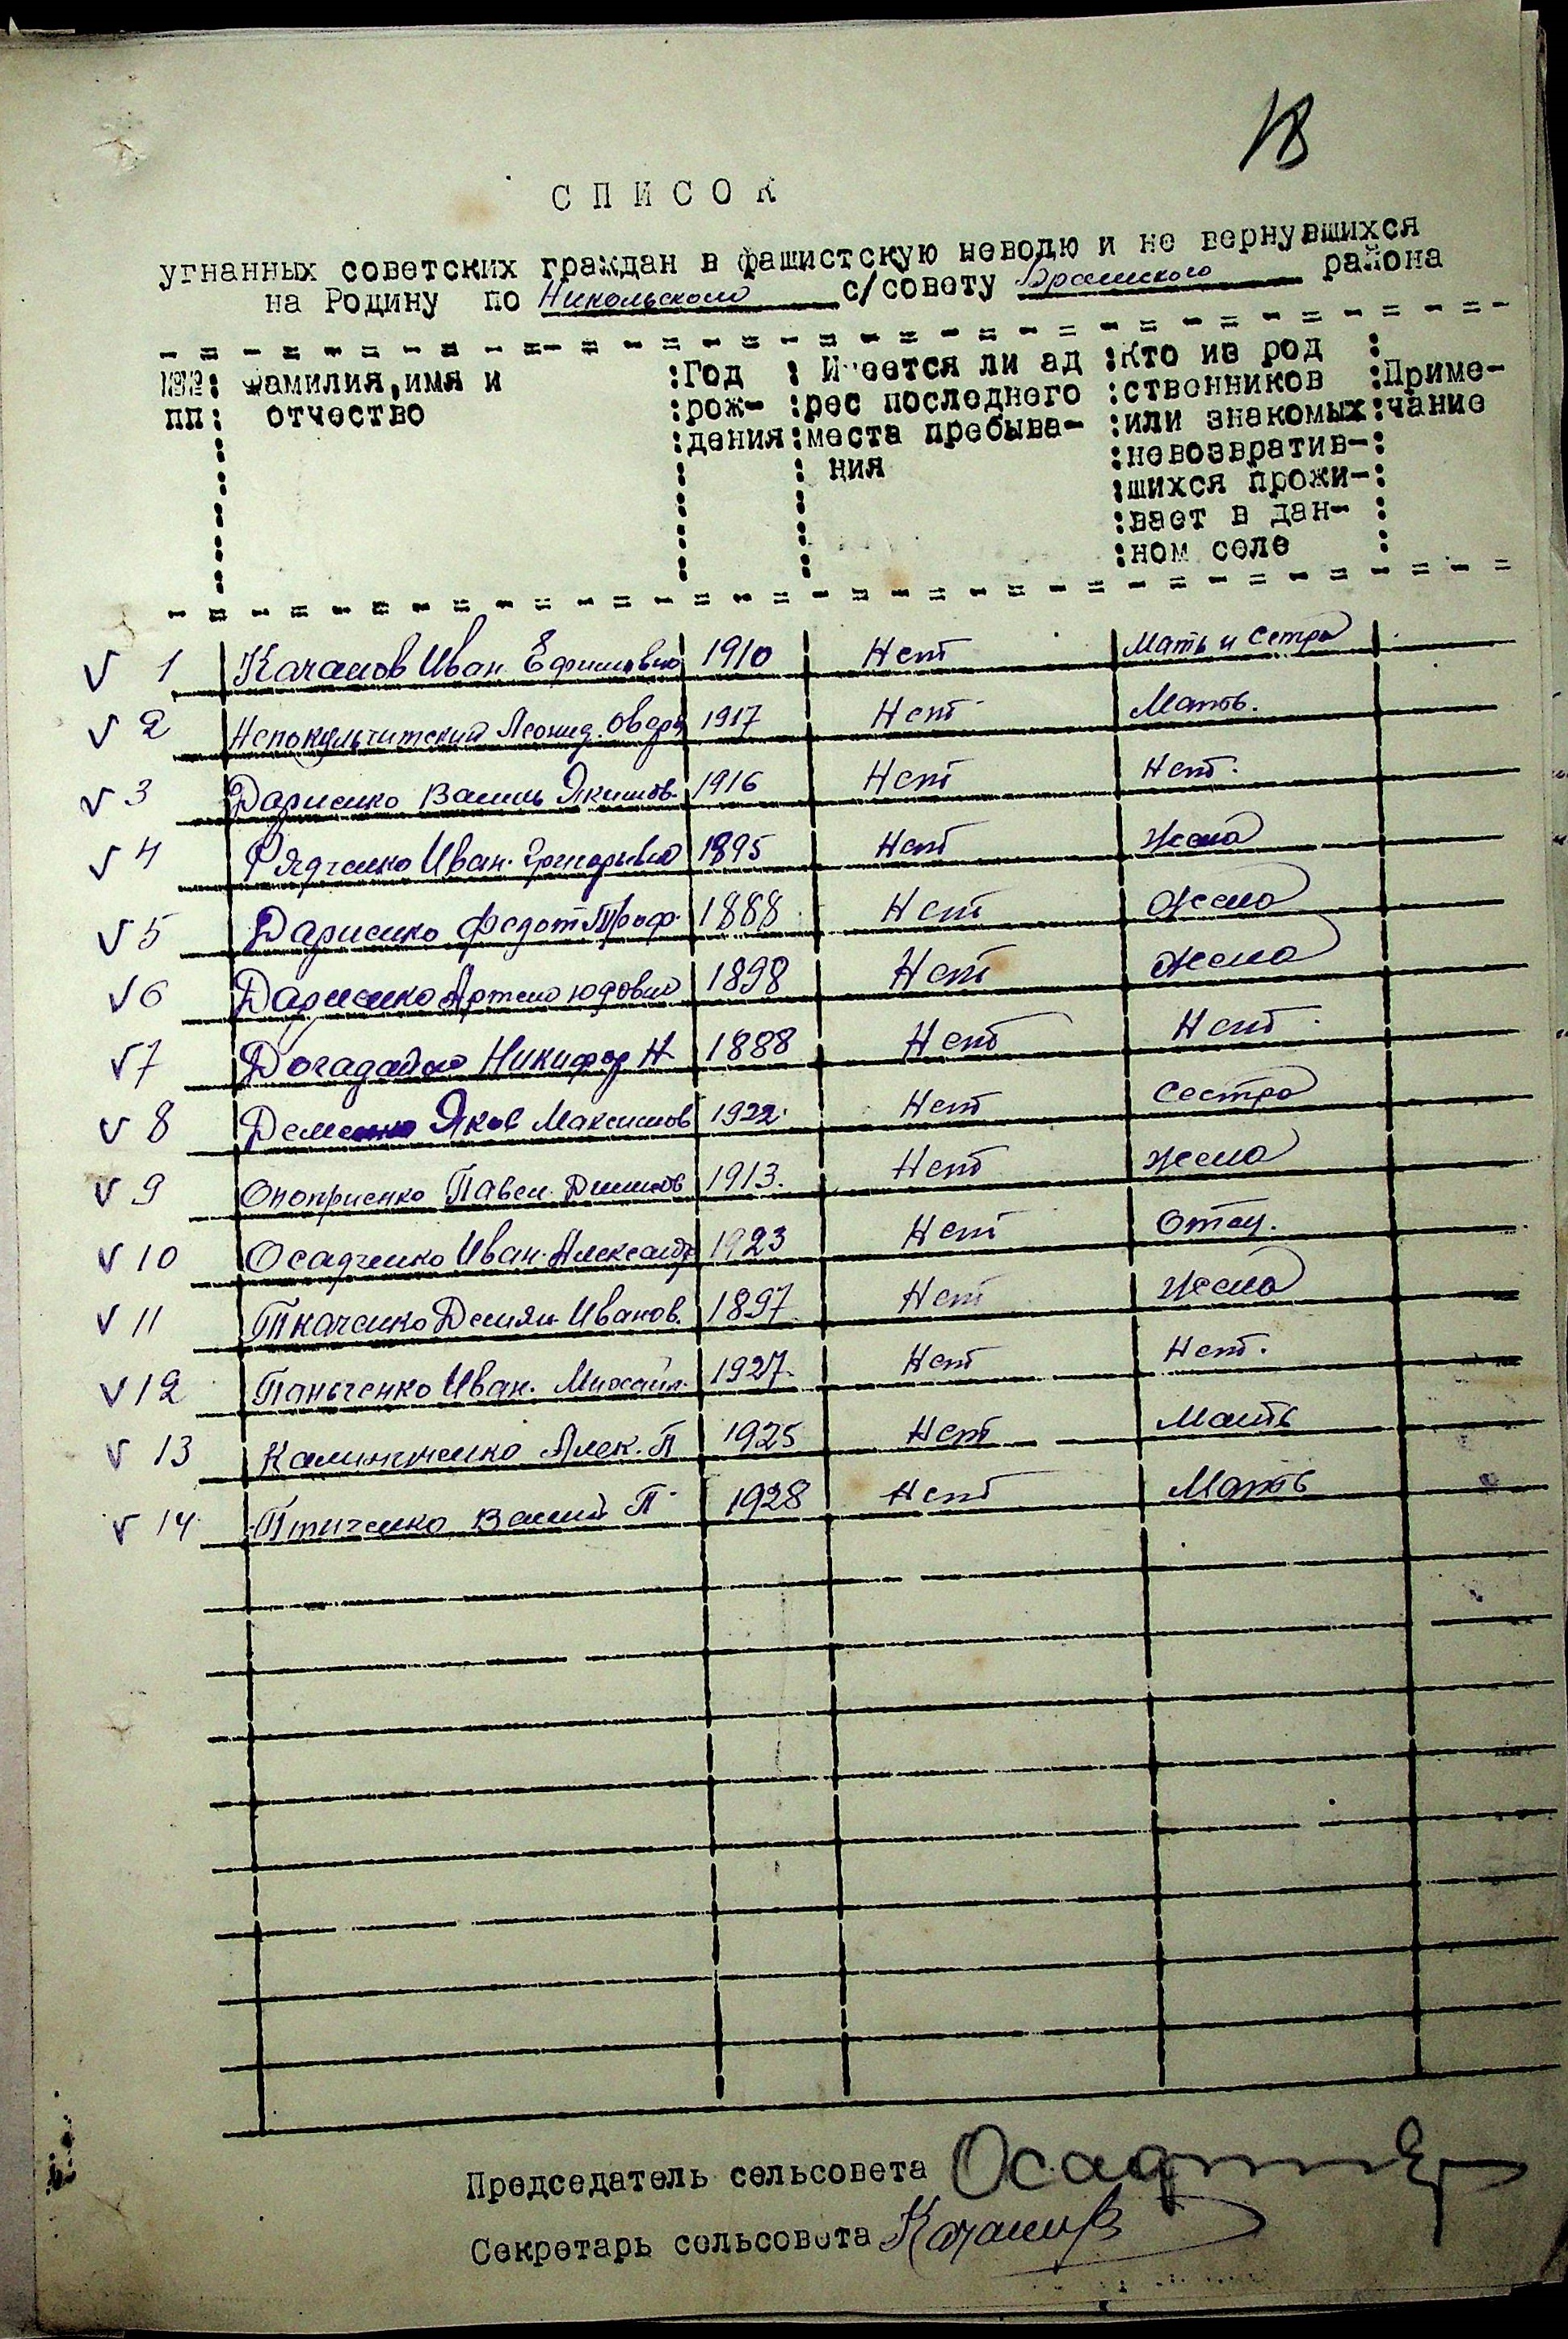 18
СПИСОК
угнанных советских граждан в фашистскую неволю и не вернувшихся
на Родину по Никольском с/совету района
№№ : Фамилия, имя и :Год : Имеется ли ад :Кто из род :
пп: отчество :рож- :рес последнего :ственников :Приме-
:дения:места пребыва- :или знакомых:чание
: ния :невозвратив-:
:шихся прожи-:
:вает в дан- :
:ном селе :
V 1 Качанов Иван Ефимович 1910 Нет Мать и Сетра
V 2 Непокульчитский Леонид. 1917 Нет Мать.
V 3 Дариенко Васить Якимов. 1916 Нет Нет.
V 4 Рядченко Иван. Григорьевич 1895 Нет Жена
V 5 Дариенко Федот Троф. 1888 Нет Жена
V 6 Дариенко Артем Юдович 1898 Нет Жена
V 7 Никифор Н 1888 Нет Нет.
V 8 Яков Максимов 1922. Нет Сестра
V 9 Оноприенко Павел. 1913. Нет Жена
V 10 Осадченко Иван. Александ 1923 Нет Отец.
V 11 Ткаченко Демян Иванов. 1897 Нет Жена
V 12 Паньченко Иван. Михайл. 1927. Нет Нет.
V 13 Алек. П 1925 Нет Мать
V 14 Птиченко П 1928 Нет Мать
Председатель сельсовета
Секретарь сельсовета